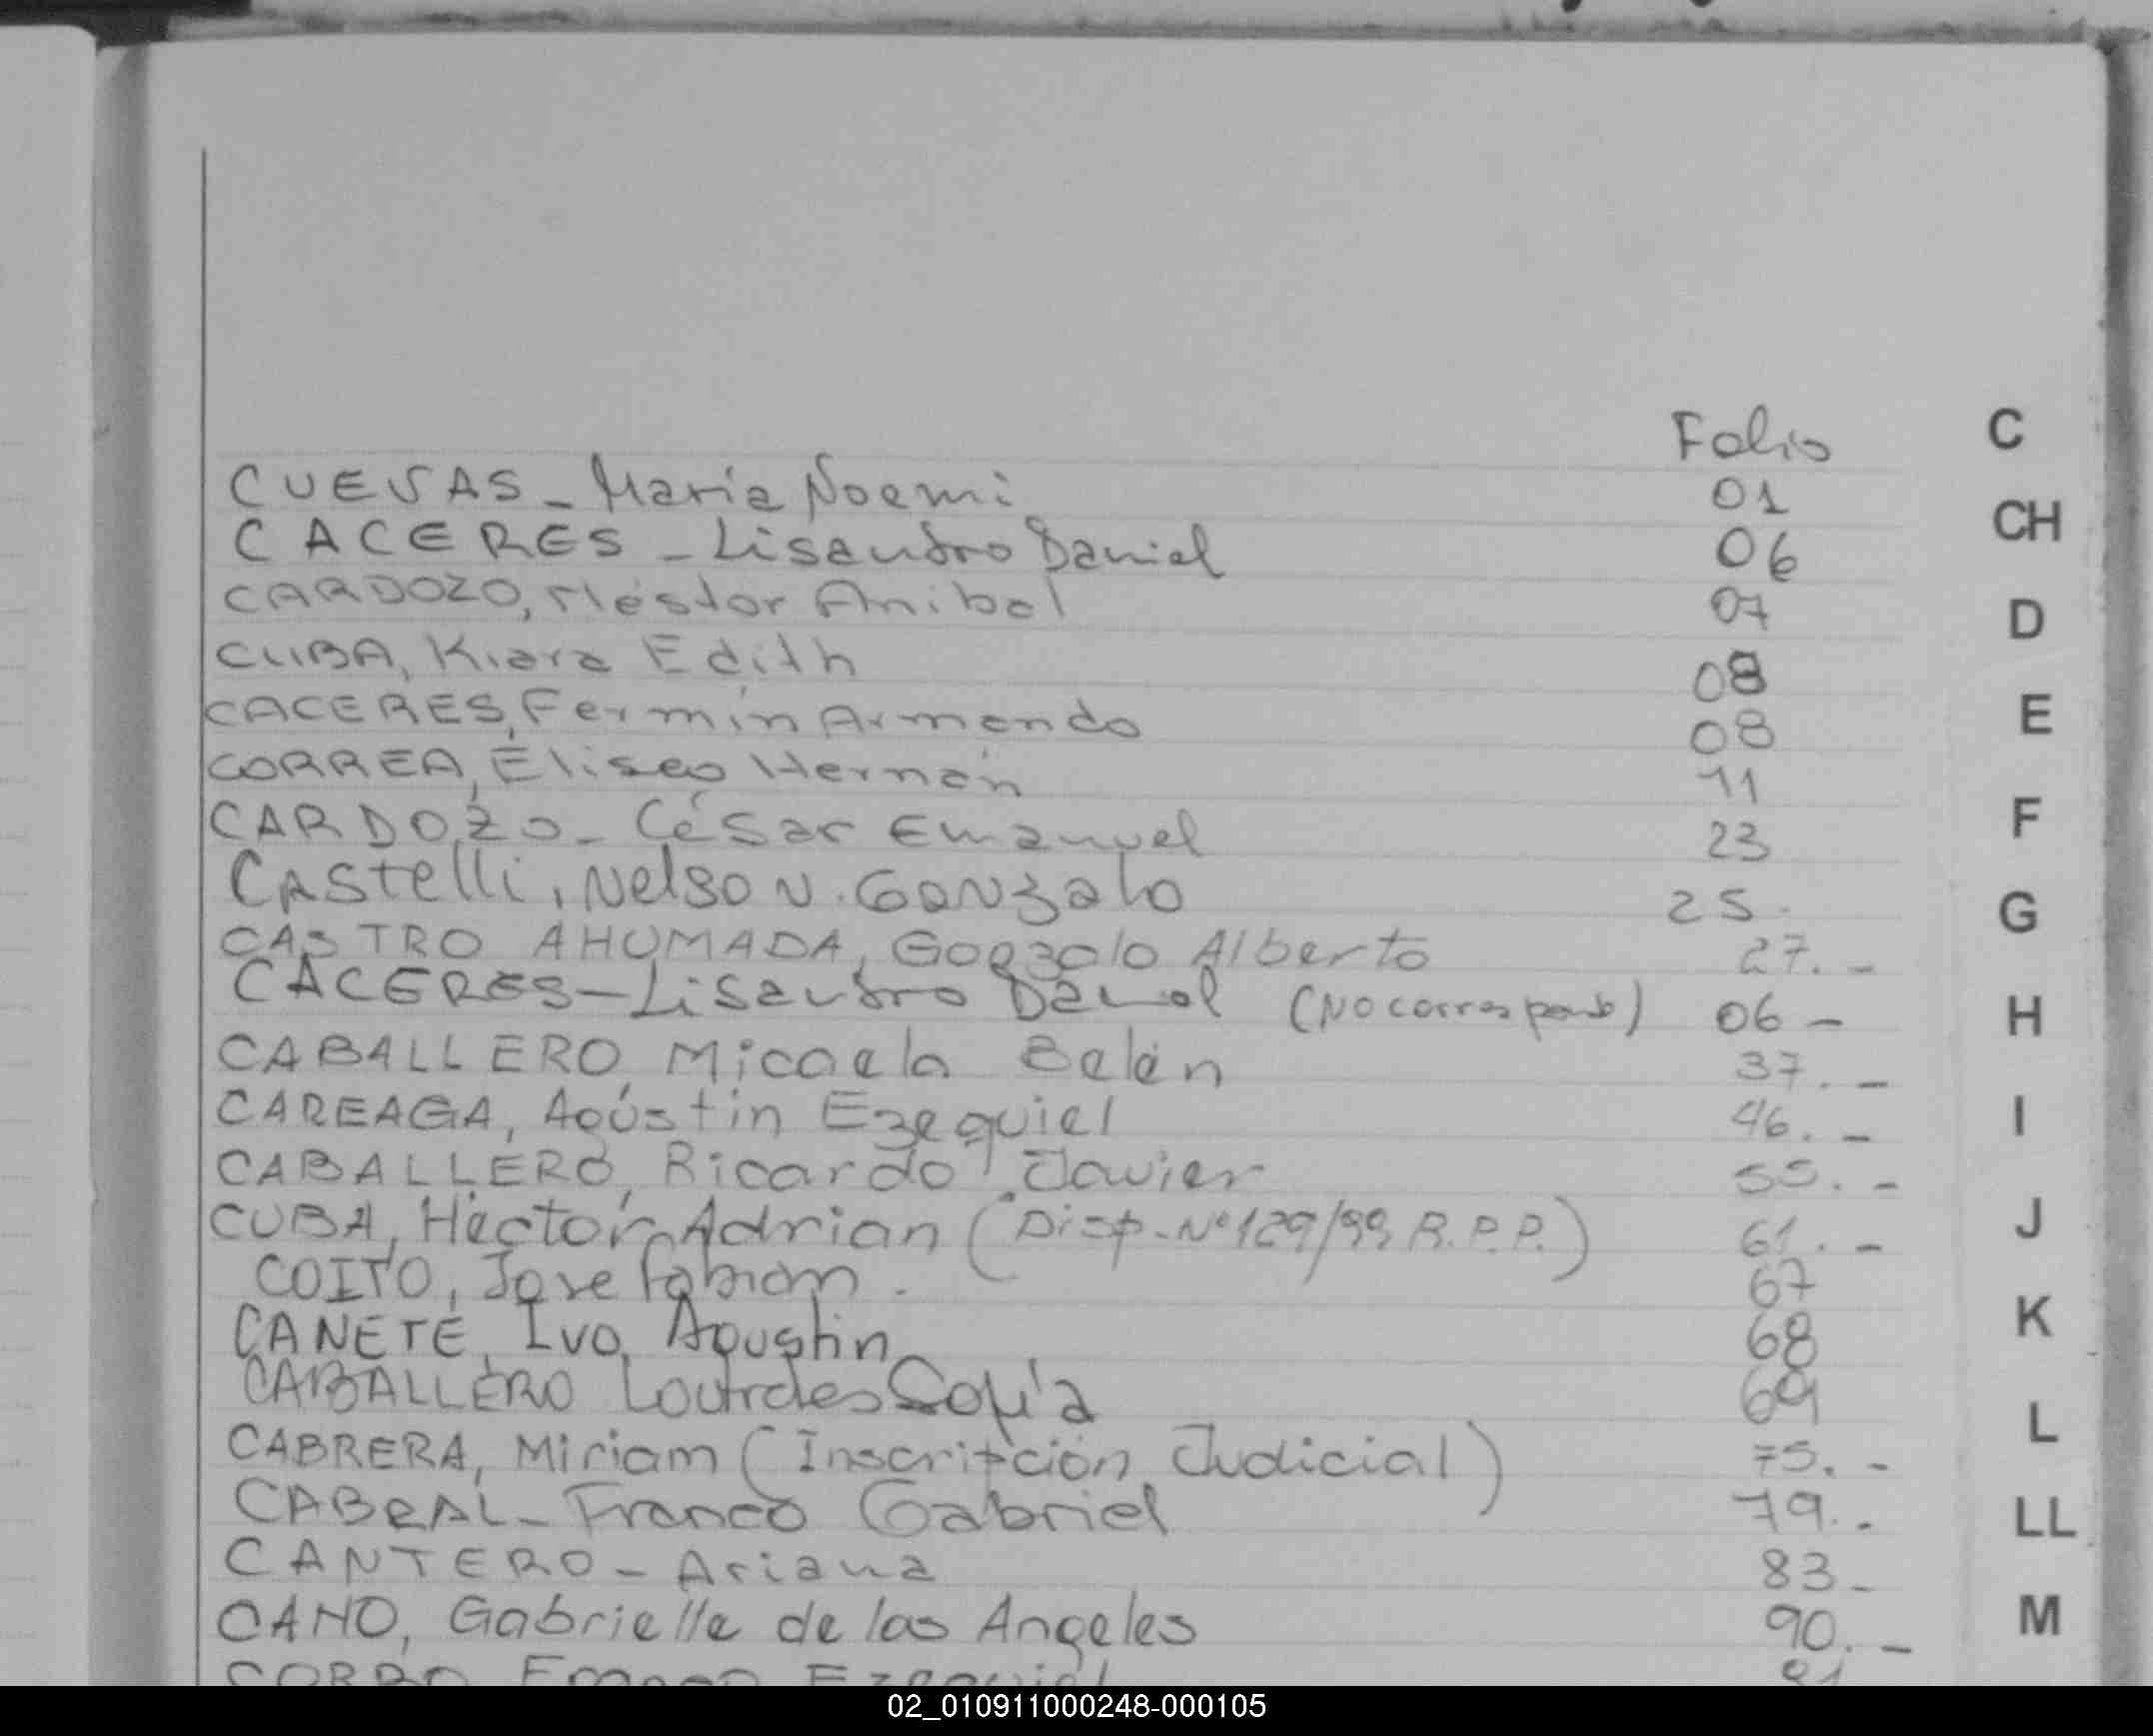 Folio
CUEVAS - María Noemi 01
CACERES - Lisandro Daniel 06
CARDOZO, Néstor Anibal 07
CUBA, Kiara Edith 08
CACERES, Fermín Armando 08
CORREA, Eliseo Hernán 11
CARDOZO - César Emanuel 23
CAStelli, NelsoN. GoNzalo 25.
CASTRO AHUMADA, Gonzalo Alberto 27.-
CACERES - Lisandro Daniel (No corresponde) 06 -
CABALLERO, Micaela Belén 37.-
CAREAGA, Agústin Ezequiel 46.-
CABALLERO, Ricardo Javier 55.-
CUBA, Héctor Adrian (Disp. Nº 129/99 R.P.P.) 61.-
COITO, Jose Fabian. 67
CANETE, Ivo Agustin 68
CABALLERO Lourdes Sofía 69
CABRERA, Miriam (Inscripción Judicial) 75.-
CABRAL - Franco Gabriel 79.-
CANTERO - Ariana 83-
CANO, Gabrielle de las Angeles 90.-
Ezequiel 91
C
CH
D
E
F
G
H
I
J
K
L
LL
M
02_010911000248-000105